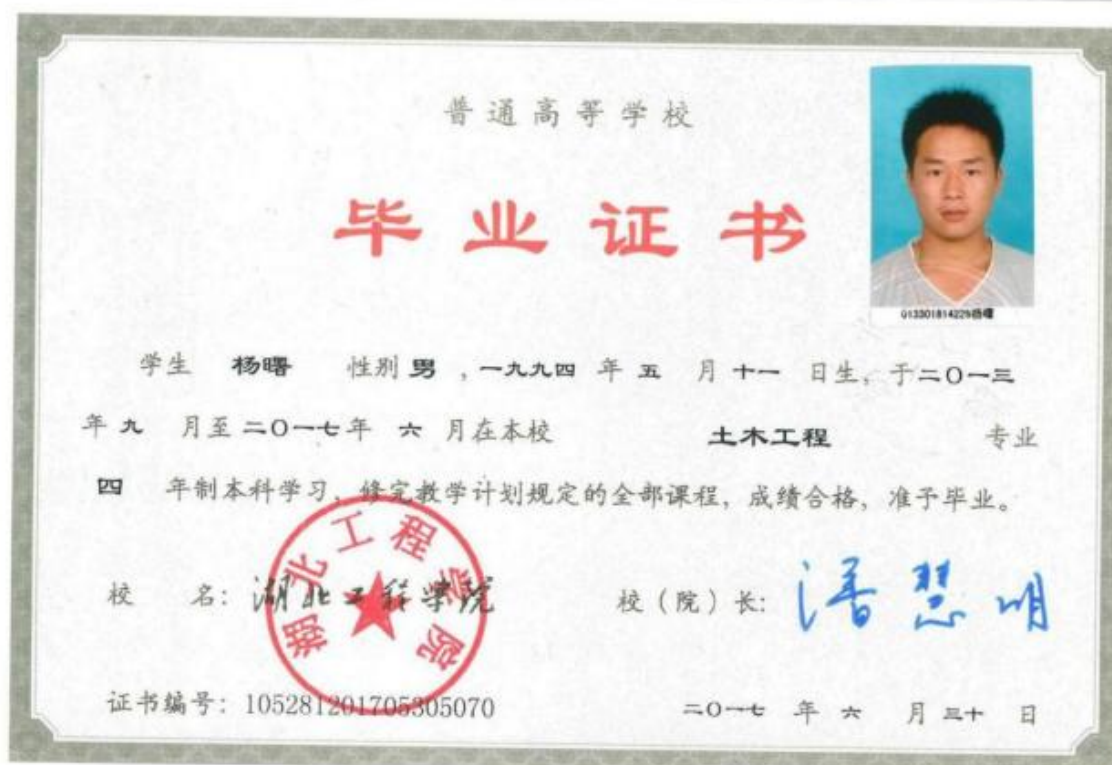 普通高等学校
毕业证书
013301814229杨曙
学生 杨曙 性别 男 ，一九九四 年 五 月 十一 日生，于二〇一三
年 九 月至 二〇一七 年 六 月在本校 土木工程 专业
四 年制本科学习，修完教学计划规定的全部课程，成绩合格，准予毕业。
湖北工程学院
校 名：湖北工程学院 校（院）长：潘慧明
证书编号：105281201705305070 二〇一七 年 六 月 三十 日